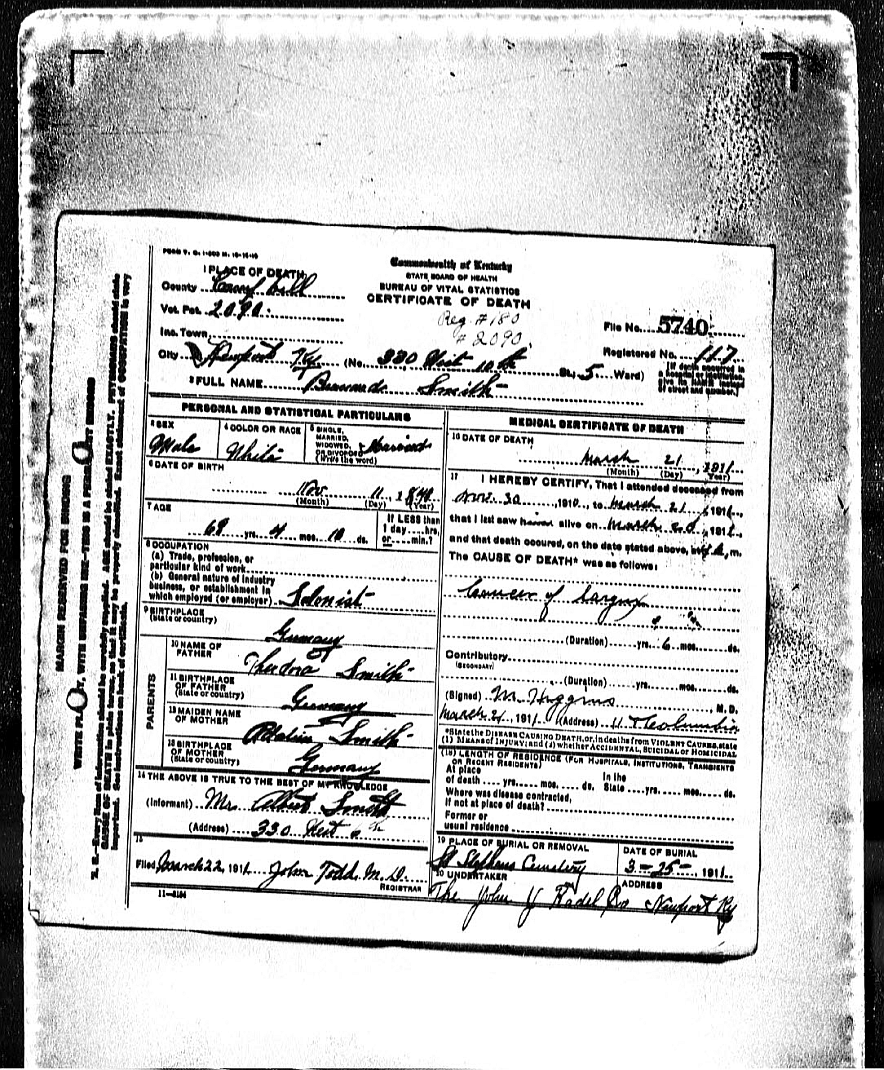 FORM V. S. 1
Commonwealth of Kentucky
STATE BOARD OF HEALTH
BUREAU OF VITAL STATISTICS
CERTIFICATE OF DEATH
Reg. #180
#2090
1 PLACE OF DEATH
County Campbell
Vot. Pct. 2090
Inc. Town
City Newport Ky. (No. 330 West 10th St., 5 Ward)
File No. 5740
Registered No. 117
[If death occurred in a hospital or institution give its NAME instead of street and number.]
2 FULL NAME Smith
PERSONAL AND STATISTICAL PARTICULARS
3 SEX
Male
4 COLOR OR RACE
White
5 SINGLE, MARRIED, WIDOWED, OR DIVORCED (Write the word)
Married
6 DATE OF BIRTH
Nov 11
(Month) (Day) (Year)
7 AGE
68 yrs. 4 mos. 10 ds.
If LESS than 1 day hrs. or min.?
8 OCCUPATION
(a) Trade, profession, or particular kind of work
(b) General nature of industry business, or establishment in which employed (or employer)
9 BIRTHPLACE
(State or country)
Germany
PARENTS
10 NAME OF FATHER
Theodore Smith
11 BIRTHPLACE OF FATHER
(State or country)
Germany
12 MAIDEN NAME OF MOTHER
Smith
13 BIRTHPLACE OF MOTHER
(State or country)
Germany
14 THE ABOVE IS TRUE TO THE BEST OF MY KNOWLEDGE
(Informant) Mrs Albert Smith
(Address) 330 West
15
Filed March 22, 1911 John Todd M. D.
REGISTRAR
11—8184
MEDICAL CERTIFICATE OF DEATH
16 DATE OF DEATH
March 21, 1911
(Month) (Day) (Year)
17 I HEREBY CERTIFY, That I attended deceased from
Nov. 30, 1910, to March 21, 1911,
that I last saw alive on March 20, 1911,
and that death occured, on the date stated above, at m.
The CAUSE OF DEATH* was as follows:
Cancer of Larynx
(Duration) yrs. 6 mos. ds.
Contributory
(SECONDARY)
(Duration) yrs. mos. ds.
(Signed) M. Higgins, M. D.
March 21, 1911 (Address) Columbia
*State the DISEASE CAUSING DEATH, or, in deaths from VIOLENT CAUSES, state
(1) MEANS OF INJURY; and (2) whether ACCIDENTAL, SUICIDAL OR HOMICIDAL
(18) LENGTH OF RESIDENCE (FOR HOSPITALS, INSTITUTIONS, TRANSIENTS OR RECENT RESIDENTS)
At place of death yrs. mos. ds. In the State yrs. mos. ds.
Where was disease contracted, if not at place of death?
Former or usual residence
19 PLACE OF BURIAL OR REMOVAL
St Stephens Cemetery
DATE OF BURIAL
3—25—, 1911
20 UNDERTAKER
The John J Radel Co
ADDRESS
Newport Ky
MARGIN RESERVED FOR BINDING